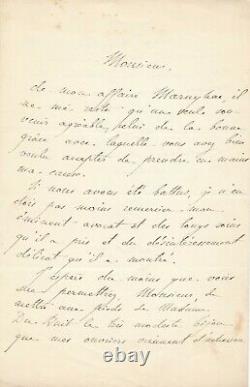 Monsieur,
de mon affaire, il
ne me reste qu'un seul sou-
venir agréable, celui de la bonne
grâce avec laquelle vous avez bien
voulu accepter de prendre en mains
ma cause.
Si nous avons été battus, je n'en
dois pas moins remercier mon
éminent avocat et des longs soins
qu'il a pris et du désintéressement
délicat qu'il a montré.
J'espère du moins que vous
me permettrez, Monsieur, de
mettre aux pieds de Madame
Du Buit le très modeste bijou
que mes ouvriers viennent d'achever